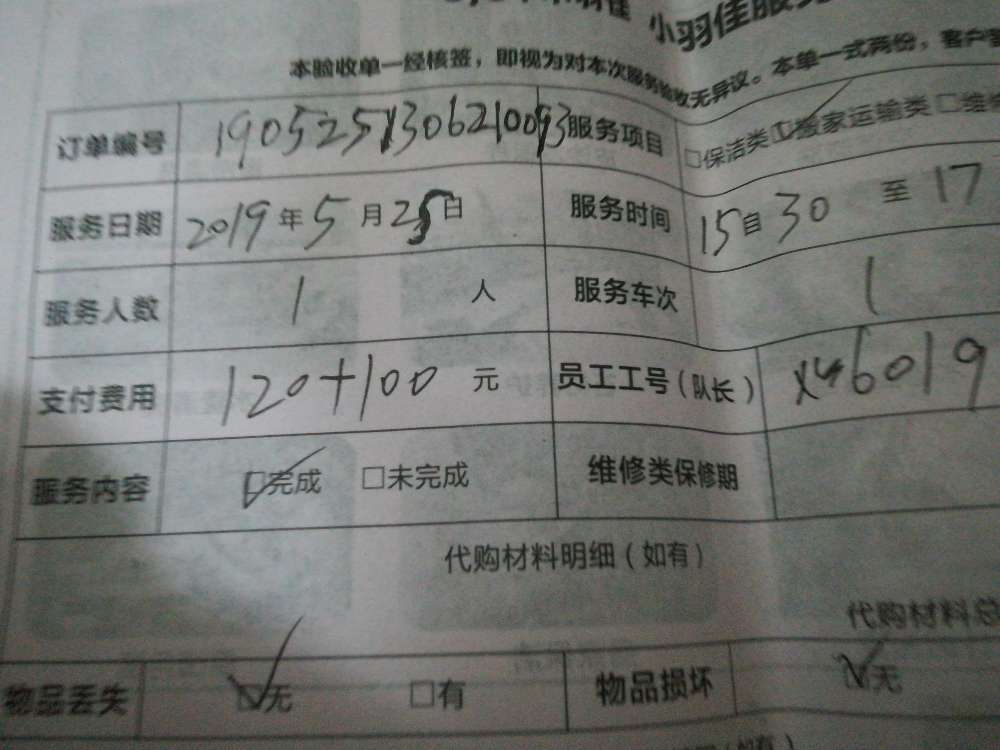 小羽佳服务
本验收单一经核签，即视为对本次服务验收无异议。本单一式两份，客户
订单编号 1905251306210093 服务项目 □保洁类 ☑搬家运输类 □维
服务日期 2019年5月25日 服务时间 15自30 至17
服务人数 1 人 服务车次 1
支付费用 120+100 元 员工工号（队长） X46019
服务内容 ☑完成 □未完成 维修类保修期
代购材料明细（如有）
代购材料总
物品丢失 ☑无 □有 物品损坏 ☑无